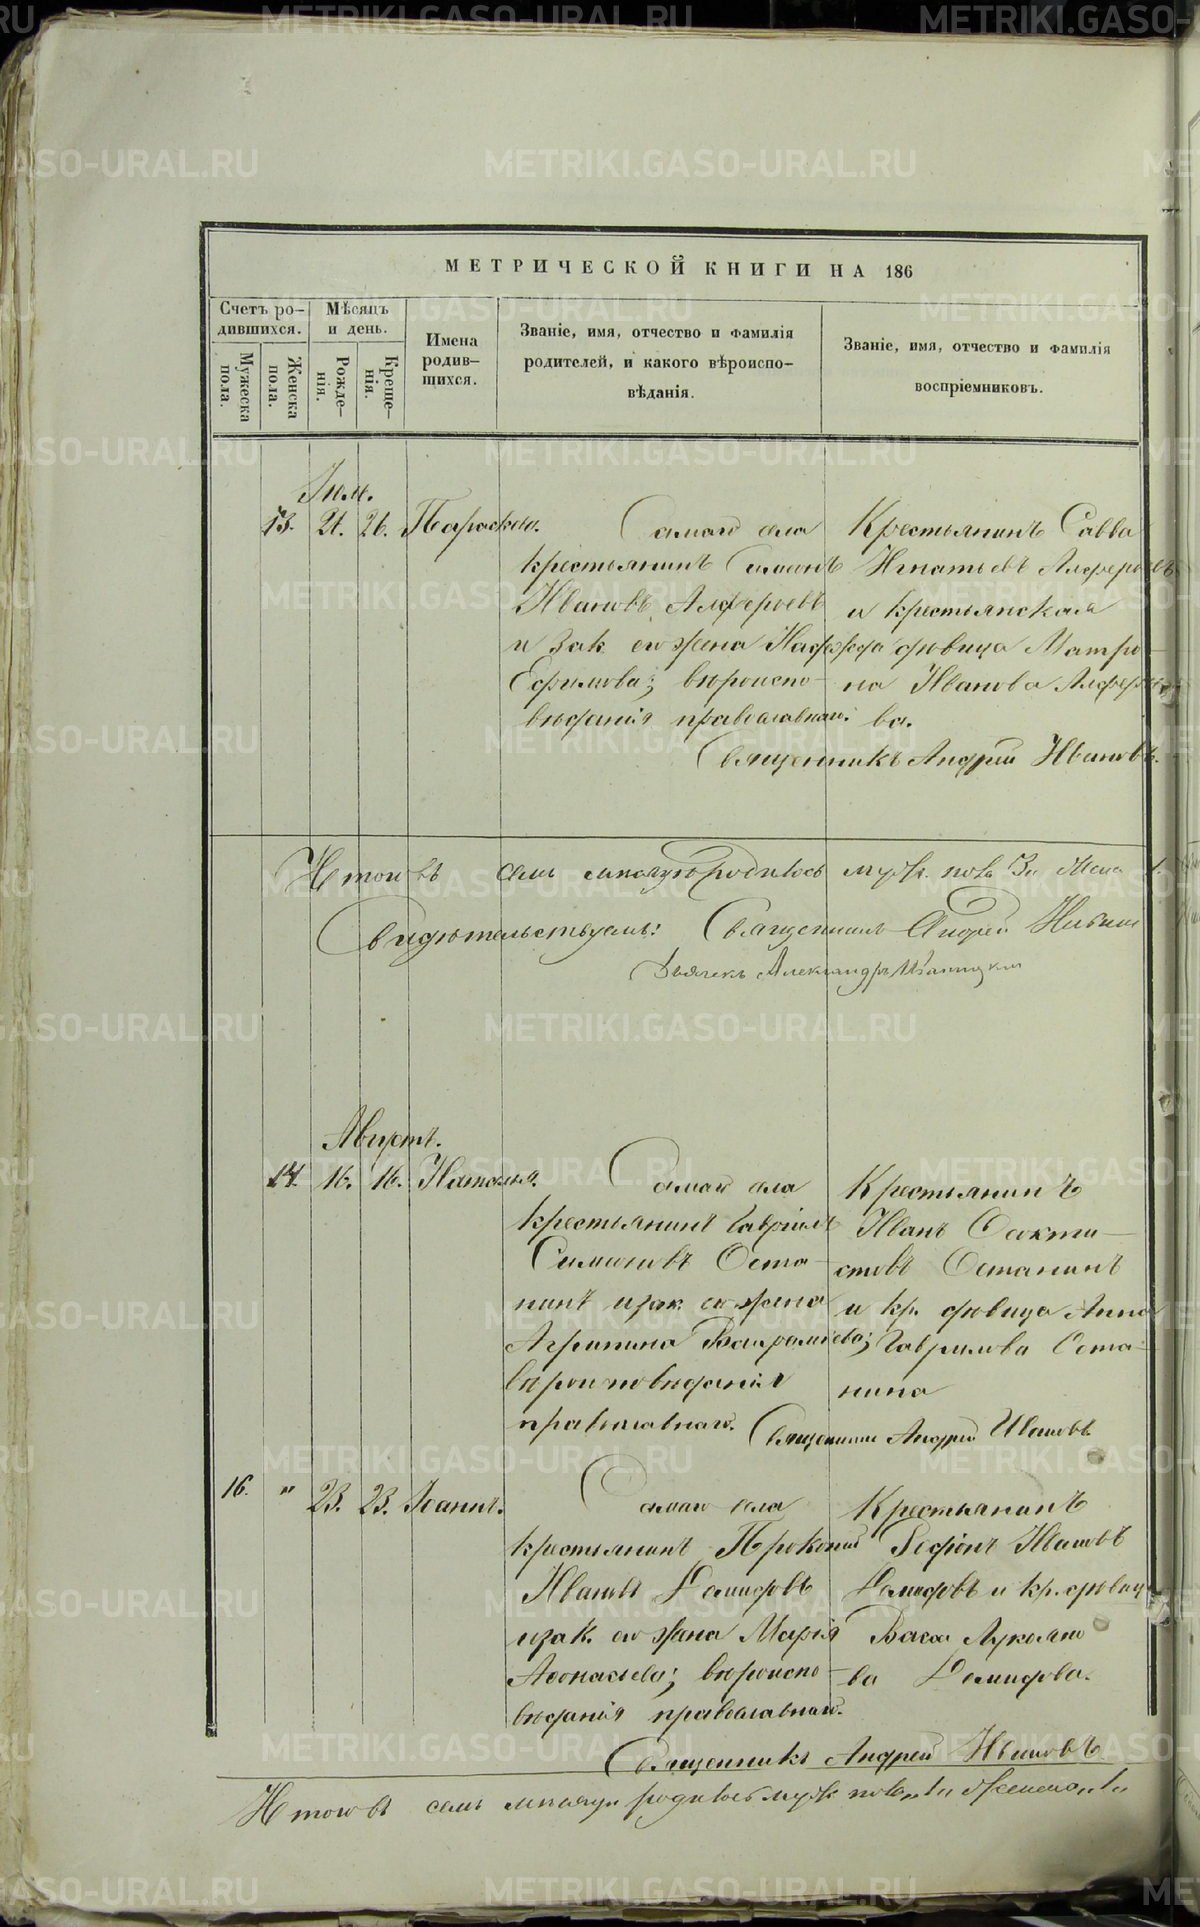 МЕТРИЧЕСКОЙ КНИГИ НА 186
Счетъ ро-
дившихся.
Мужеска
пола.
Женска
пола.
Мѣсяцъ
и день.
Рожде-
нія.
Креще-
нія.
Имена
родив-
шихся.
Званіе, имя, отчество и фамилія
родителей, и какого вѣроиспо-
вѣданія.
Званіе, имя, отчество и фамилія
воспріемниковъ.
13. 21. 26. Параскева.
села
крестьянинъ Симеонъ
Ивановъ Алферьевъ
и зак. его жена
Ефимова; вѣроиспо-
вѣданія православнаго.
Крестьянинъ Савва
Игнатьевъ Алферьевъ
и крестьянская
дѣвица Матро-
на Иванова Алферье-
ва.
Священникъ Андрей Ивановъ.
Итого въ семъ мѣсяцѣ родилось муж. пола
Свидѣтельствуемъ: Священникъ Андрей Ивановъ
Дьячекъ Александръ
Августъ.
14. 16. 16. Наталья.
села
крестьянинъ Гавріилъ
Симоновъ Оста-
нинъ и зак. его жена
Агрипина
вѣроисповѣданія
православнаго.
Крестьянинъ
Иванъ
Останинъ
и кр. дѣвица Анна
Гаврилова Оста-
нина
Священникъ Андрей Ивановъ.
16. " 23. 23. Іоаннъ.
села
крестьянинъ Прокопій
Ивановъ Демидовъ
и зак. его жена Марія
Аѳонасьева; вѣроиспо-
вѣданія православнаго.
Крестьянинъ
Ивановъ
Демидовъ и кр. дѣвица
Васса Лукьяно-
ва Демидова.
Священникъ Андрей Ивановъ
Итого въ семъ мѣсяцѣ родилось муж. пола 1 женска 1
METRIKI.GASO-URAL.RU